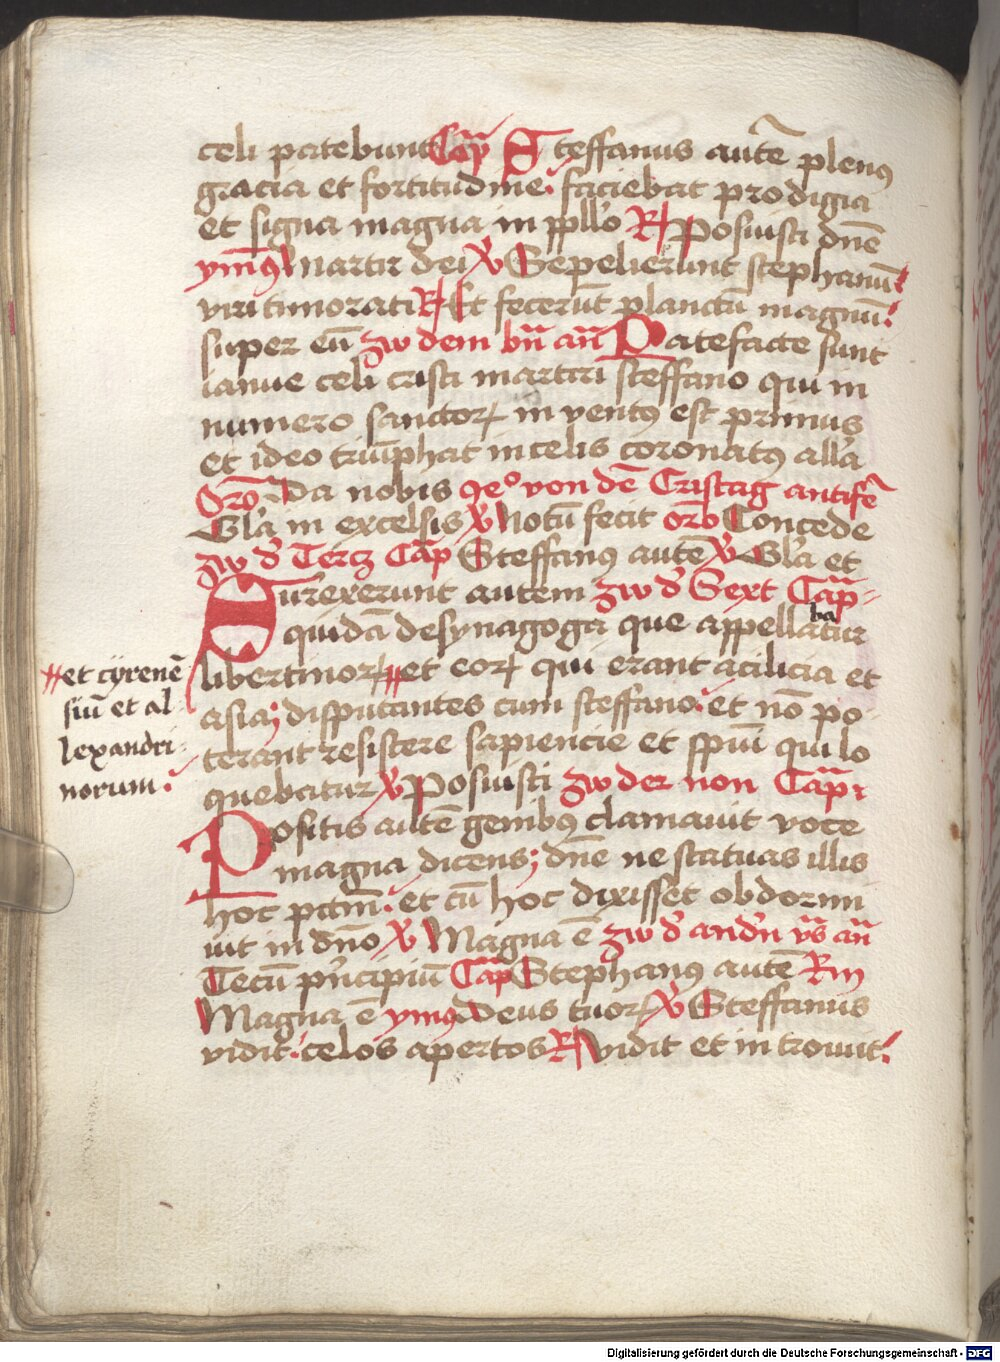 celi patebunt Cap̃ Steffanus autẽ plenus
gracia et fortitudine: faciebat prodigia
et signa magna in ppl̃o R Posuisti dñe
ymꝰ Martir dei v̾ Sepelierunt stephanũ
viri timorati R Et fecerũt planctũ magnũ:
super eũ zw dem bñ añ Patefacte sunt
ianue celi cristi martiri steffano qui in
numero sanctoꝝ in ventꝰ est primus
et ideo triũphat in celis coronatꝰ all̃a
Orõ Da nobis qͦ von dẽ Cristag antifẽ
Gl̃a in excelsis v̾ Notũ fecit orõ Concede
zw d̾ Tercz Cap̃ Steffanꝰ autẽ v̾ Gl̃a et
Surexerunt autem zw d̾ Sext Cap̃
ba
quidã de synagoga que appellatur
libertinoꝝ ⫽ et eoꝝ qui erant a cilicia et
asia; disputantes cum steffano: et nõ po
terant resistere sapiencie et sp̃ui qui lo
quebatur v̾ Posuisti zw der non Cap̃:
Positis autẽ genibꝰ clamauit voce
magna dicens; dñe ne statuas illis
hoc pc̃cm̃: et cũ hoc dixisset obdormi
uit in dño v̾ Magna ẽ zw d̾ and̾n v̾s añ
Tecũ pͥncipiũ Cap̃ Stephanꝰ autẽ Rm
Magna ẽ ymꝰ Deus tuoꝝ v̾ Steffanus
vidit: celos apertos R vidit et introiuit:
⫽ et cyrenẽ
siũ et al-
lexandri-
norum:
Digitalisierung gefördert durch die Deutsche Forschungsgemeinschaft - DFG